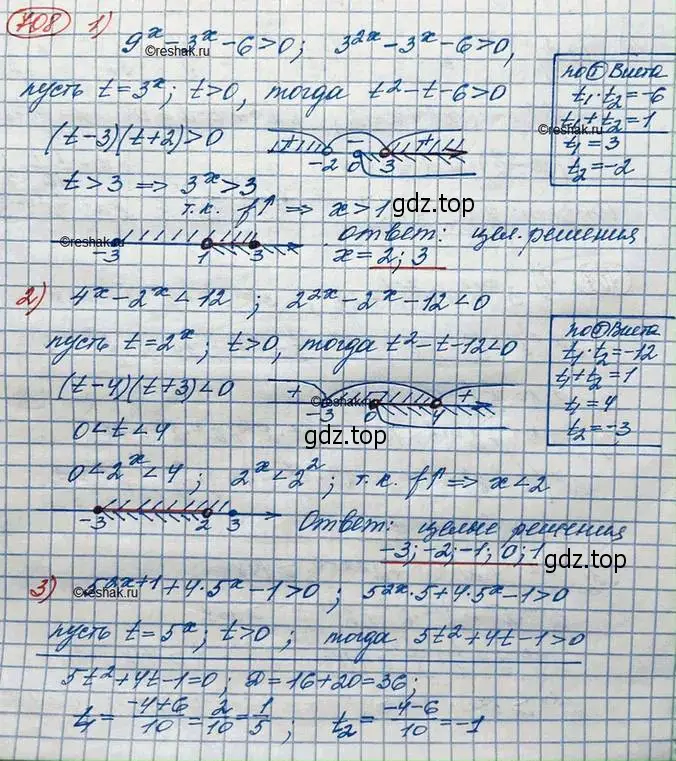 708 1) 9ˣ - 3ˣ - 6 > 0; 3²ˣ - 3ˣ - 6 > 0,
©reshak.ru
пусть t = 3ˣ; t > 0, тогда t² - t - 6 > 0
по Т Виета
t₁ · t₂ = -6
t₁ + t₂ = 1
t₁ = 3
t₂ = -2
(t-3)(t+2) > 0
+ - +
-2 0 3
t > 3 => 3ˣ > 3
т.к. f↑ => x > 1
gdz.top
©reshak.ru
-3 1 3
Ответ: цел. решения
x = 2; 3
2) 4ˣ - 2ˣ < 12 ; 2²ˣ - 2ˣ - 12 < 0
пусть t = 2ˣ; t > 0, тогда t² - t - 12 < 0
по Т Виета
t₁ · t₂ = -12
t₁ + t₂ = 1
t₁ = 4
t₂ = -3
(t-4)(t+3) < 0
+ - +
-3 0 4
©reshak.ru
0 < t < 4
gdz.top
0 < 2ˣ < 4 ; 2ˣ < 2² ; т.к. f↑ => x < 2
-3 2 3
Ответ: целые решения
-3; -2; -1; 0; 1
gdz.top
3) 5²ˣ⁺¹ + 4·5ˣ - 1 > 0 ; 5²ˣ·5 + 4·5ˣ - 1 > 0
©reshak.ru
пусть t = 5ˣ; t > 0 ; тогда 5t² + 4t - 1 > 0
5t² + 4t - 1 = 0; D = 16 + 20 = 36;
t₁ = (-4+6)/10 = 2/10 = 1/5 ; t₂ = (-4-6)/10 = -1